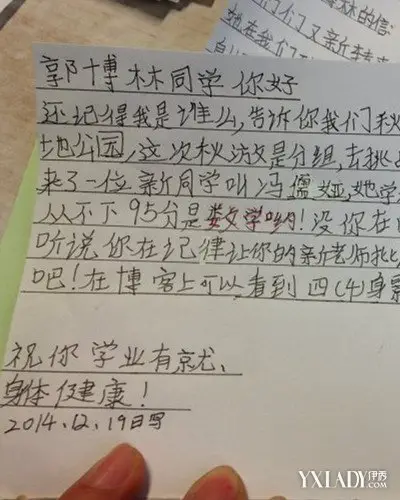 郭博林同学你好
还记得我是谁么,告诉你我们秋
地公园,这次秋游是分组,去挑
来了一位新同学叫冯儒娅,她学
从不下95分是数文学哟!没你在
听说你在记律让你的新老师批
吧!在博客上可以看到四(4)身影
祝你学业有京尤、
身体健康!
2014.12.19日写
的信:
们们又新转来
她在我们
YXLADY.com
伊秀